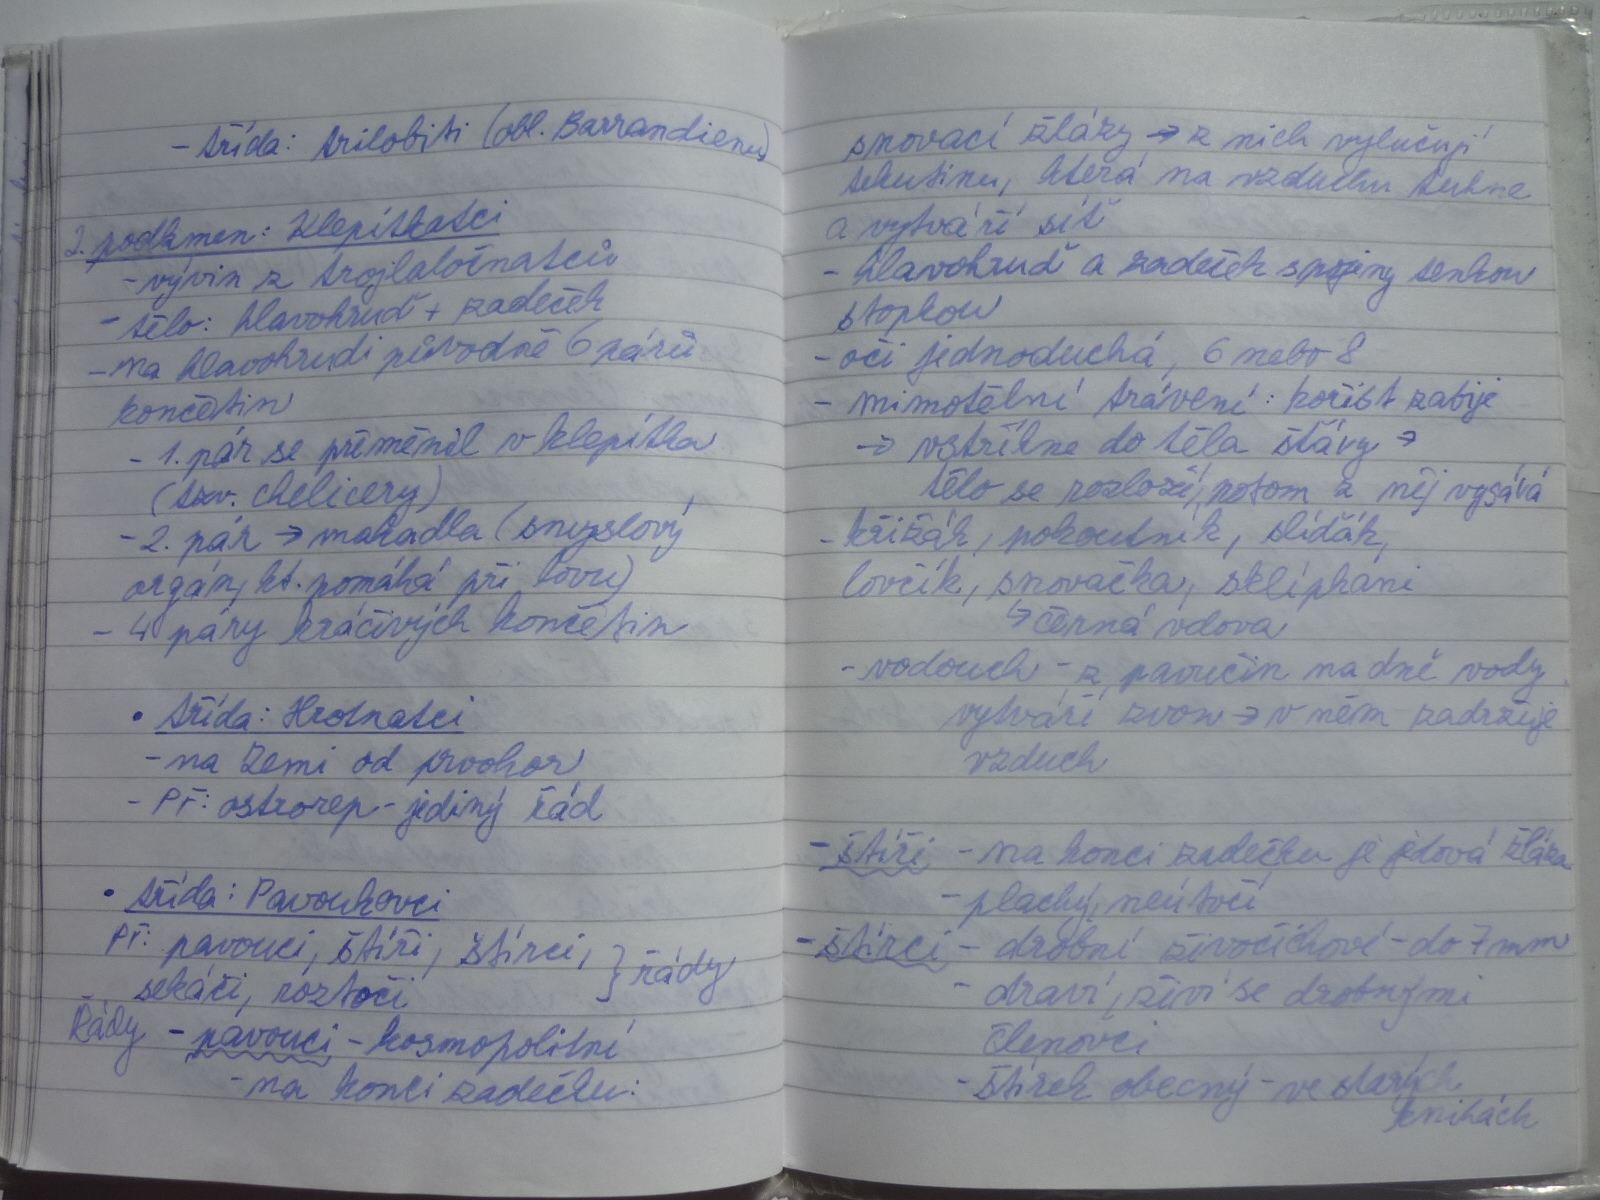 - třída: trilobiti (obl. Barrandienu)
2. podkmen: Klepítkatci
- vývin z trojlaločnatců
- tělo: hlavohruď + zadeček
- na hlavohrudi původně 6 párů
končetin
- 1. pár se přeměnil v klepítka
(tzv. chelicery)
- 2. pár → makadla (smyslový
orgán, kt. pomáhá při lovu)
- 4 páry kráčivých končetin
• třída: Hrotnatci
- na Zemi od prvohor
- Př: ostrorep - jediný řád
• třída: Pavoukovci
Př: pavouci, štíři, štírci, } řády
sekáči, roztoči
Řády - pavouci - kosmopolitní
- na konci zadečku:
snovací žlázy → z nich vylučují
tekutinu, která na vzduchu tuhne
a vytváří síť
- hlavohruď a zadeček spojeny tenkou
stopkou
- oči jednoduchá, 6 nebo 8
- mimotělní trávení: kořist zabije
→ vstříkne do těla šťávy →
tělo se rozloží, potom z něj vysává
- křižák, pokoutník, slíďák,
lovčík, snovačka, sklípkáni
↳ černá vdova
- vodouch - z pavučin na dně vody
vytváří zvon → v něm zadržuje
vzduch
- štíři - na konci zadečku je jedová žláza
- plachý, neútočí
- štírci - drobní živočichové - do 7 mm
- draví, živí se drobnými
členovci
- štírek obecný - ve starých
knihách